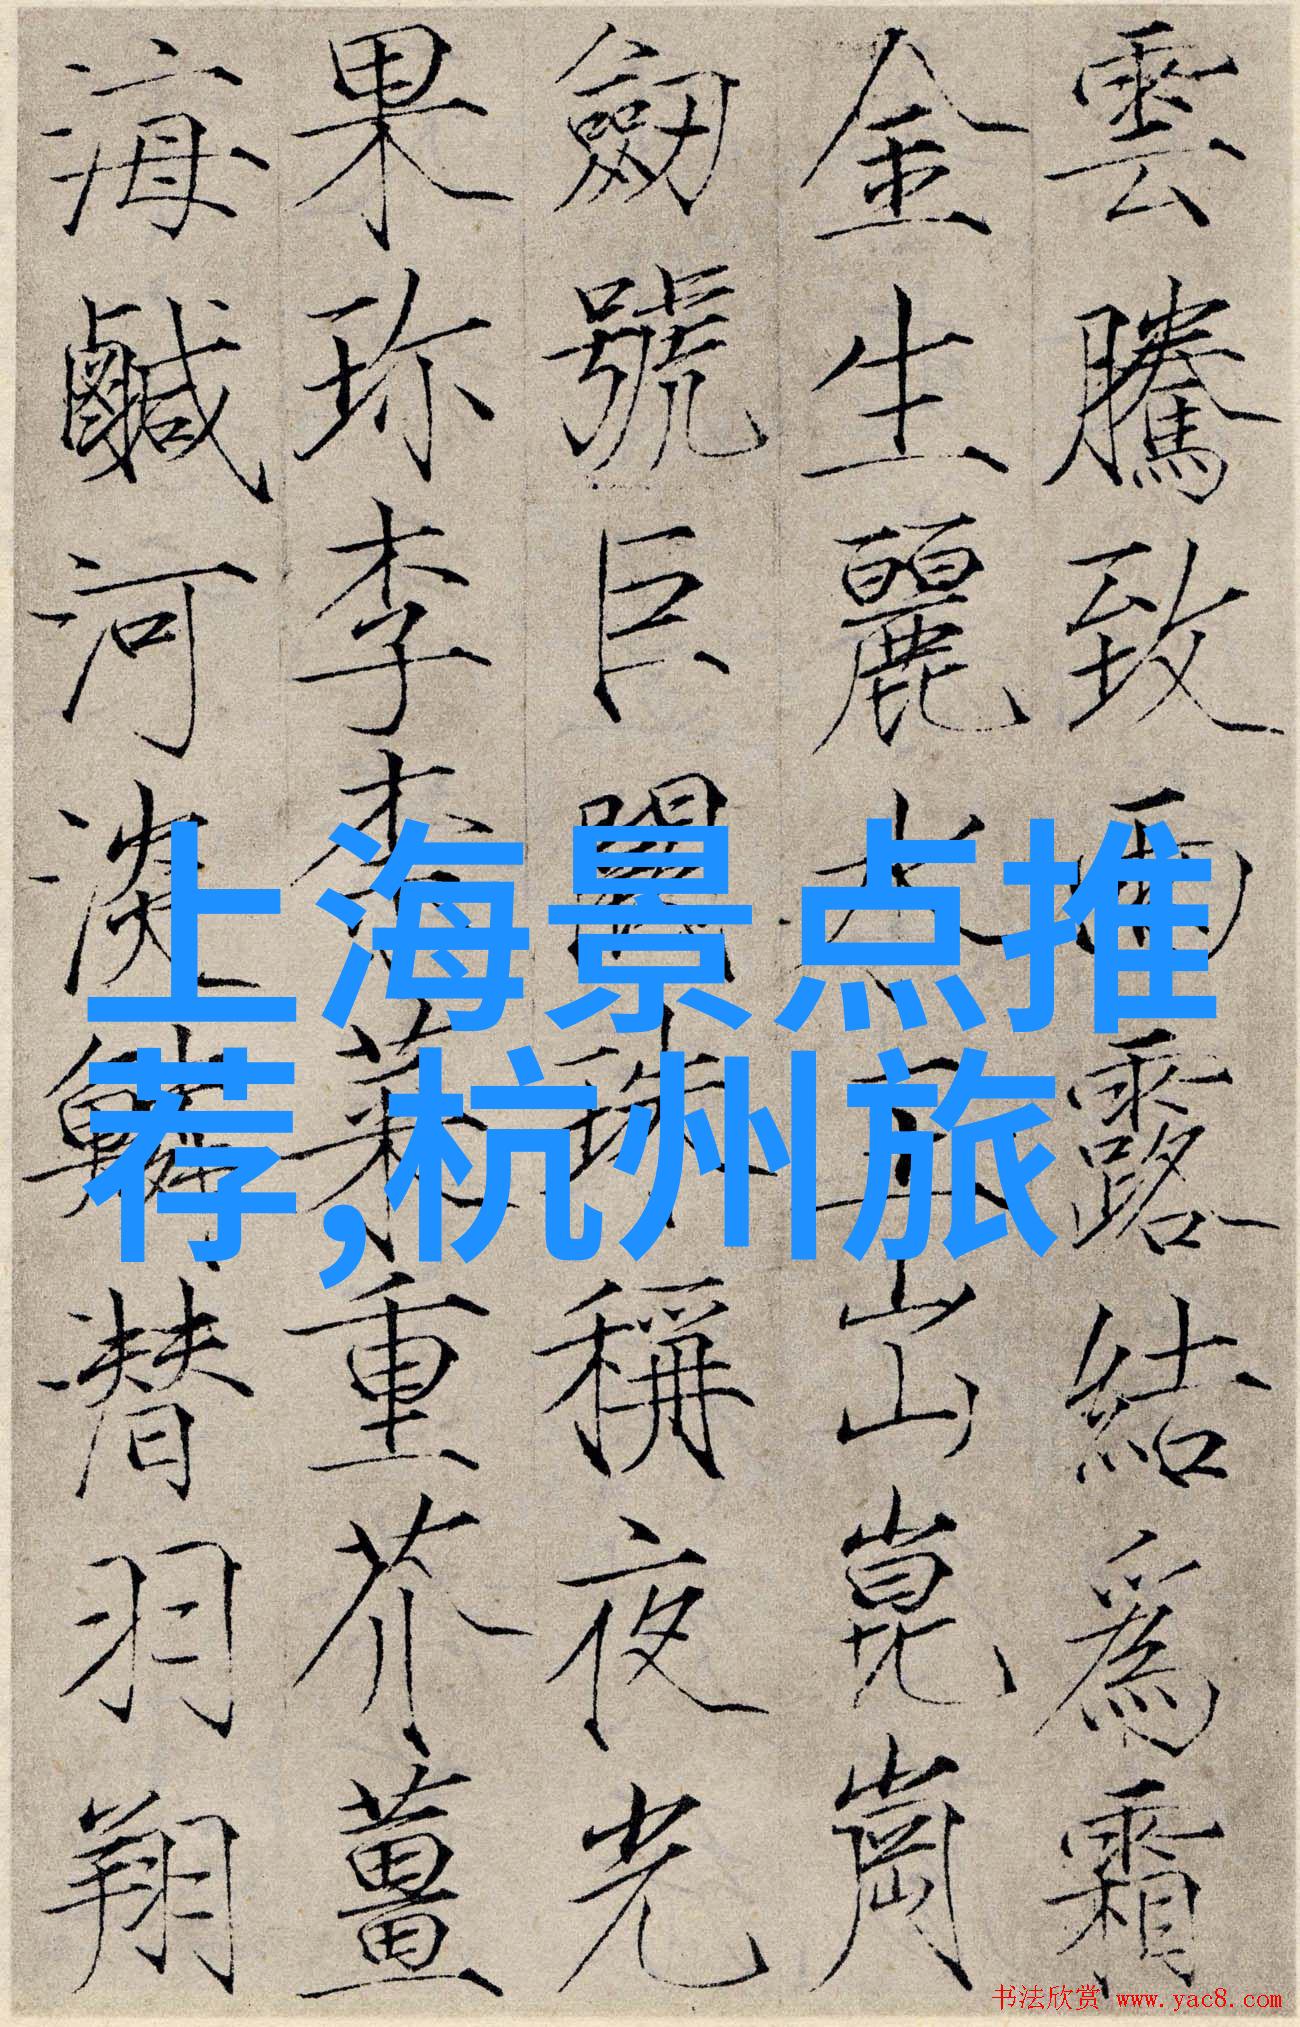 雲騰致雨露結爲霜
金生麗水玉出崑崗
劒號巨闕珠稱夜光
果珎李柰菜重芥薑
海鹹河淡鱗潜羽翔
上海景点推
荐,杭州旅
书法欣赏 www.yac8.com